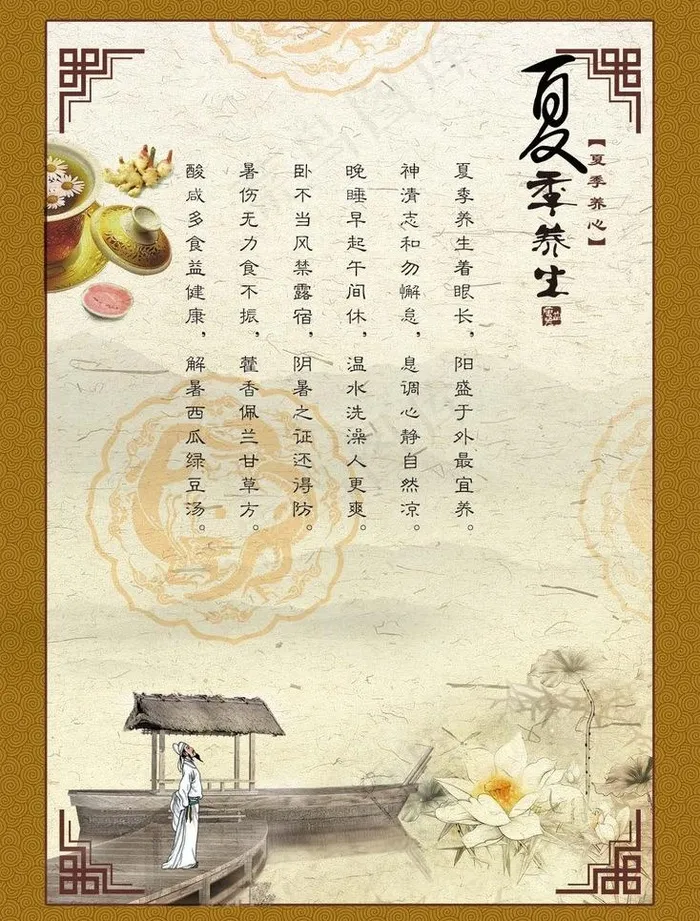 夏季养生
【夏季养心】
夏季养生着眼长，阳盛于外最宜养。
神清志和勿懈怠，息调心静自然凉。
晚睡早起午间休，温水洗澡人更爽。
卧不当风禁露宿，阴暑之证还得防。
暑伤无力食不振，藿香佩兰甘草方。
酸咸多食益健康，解暑西瓜绿豆汤。